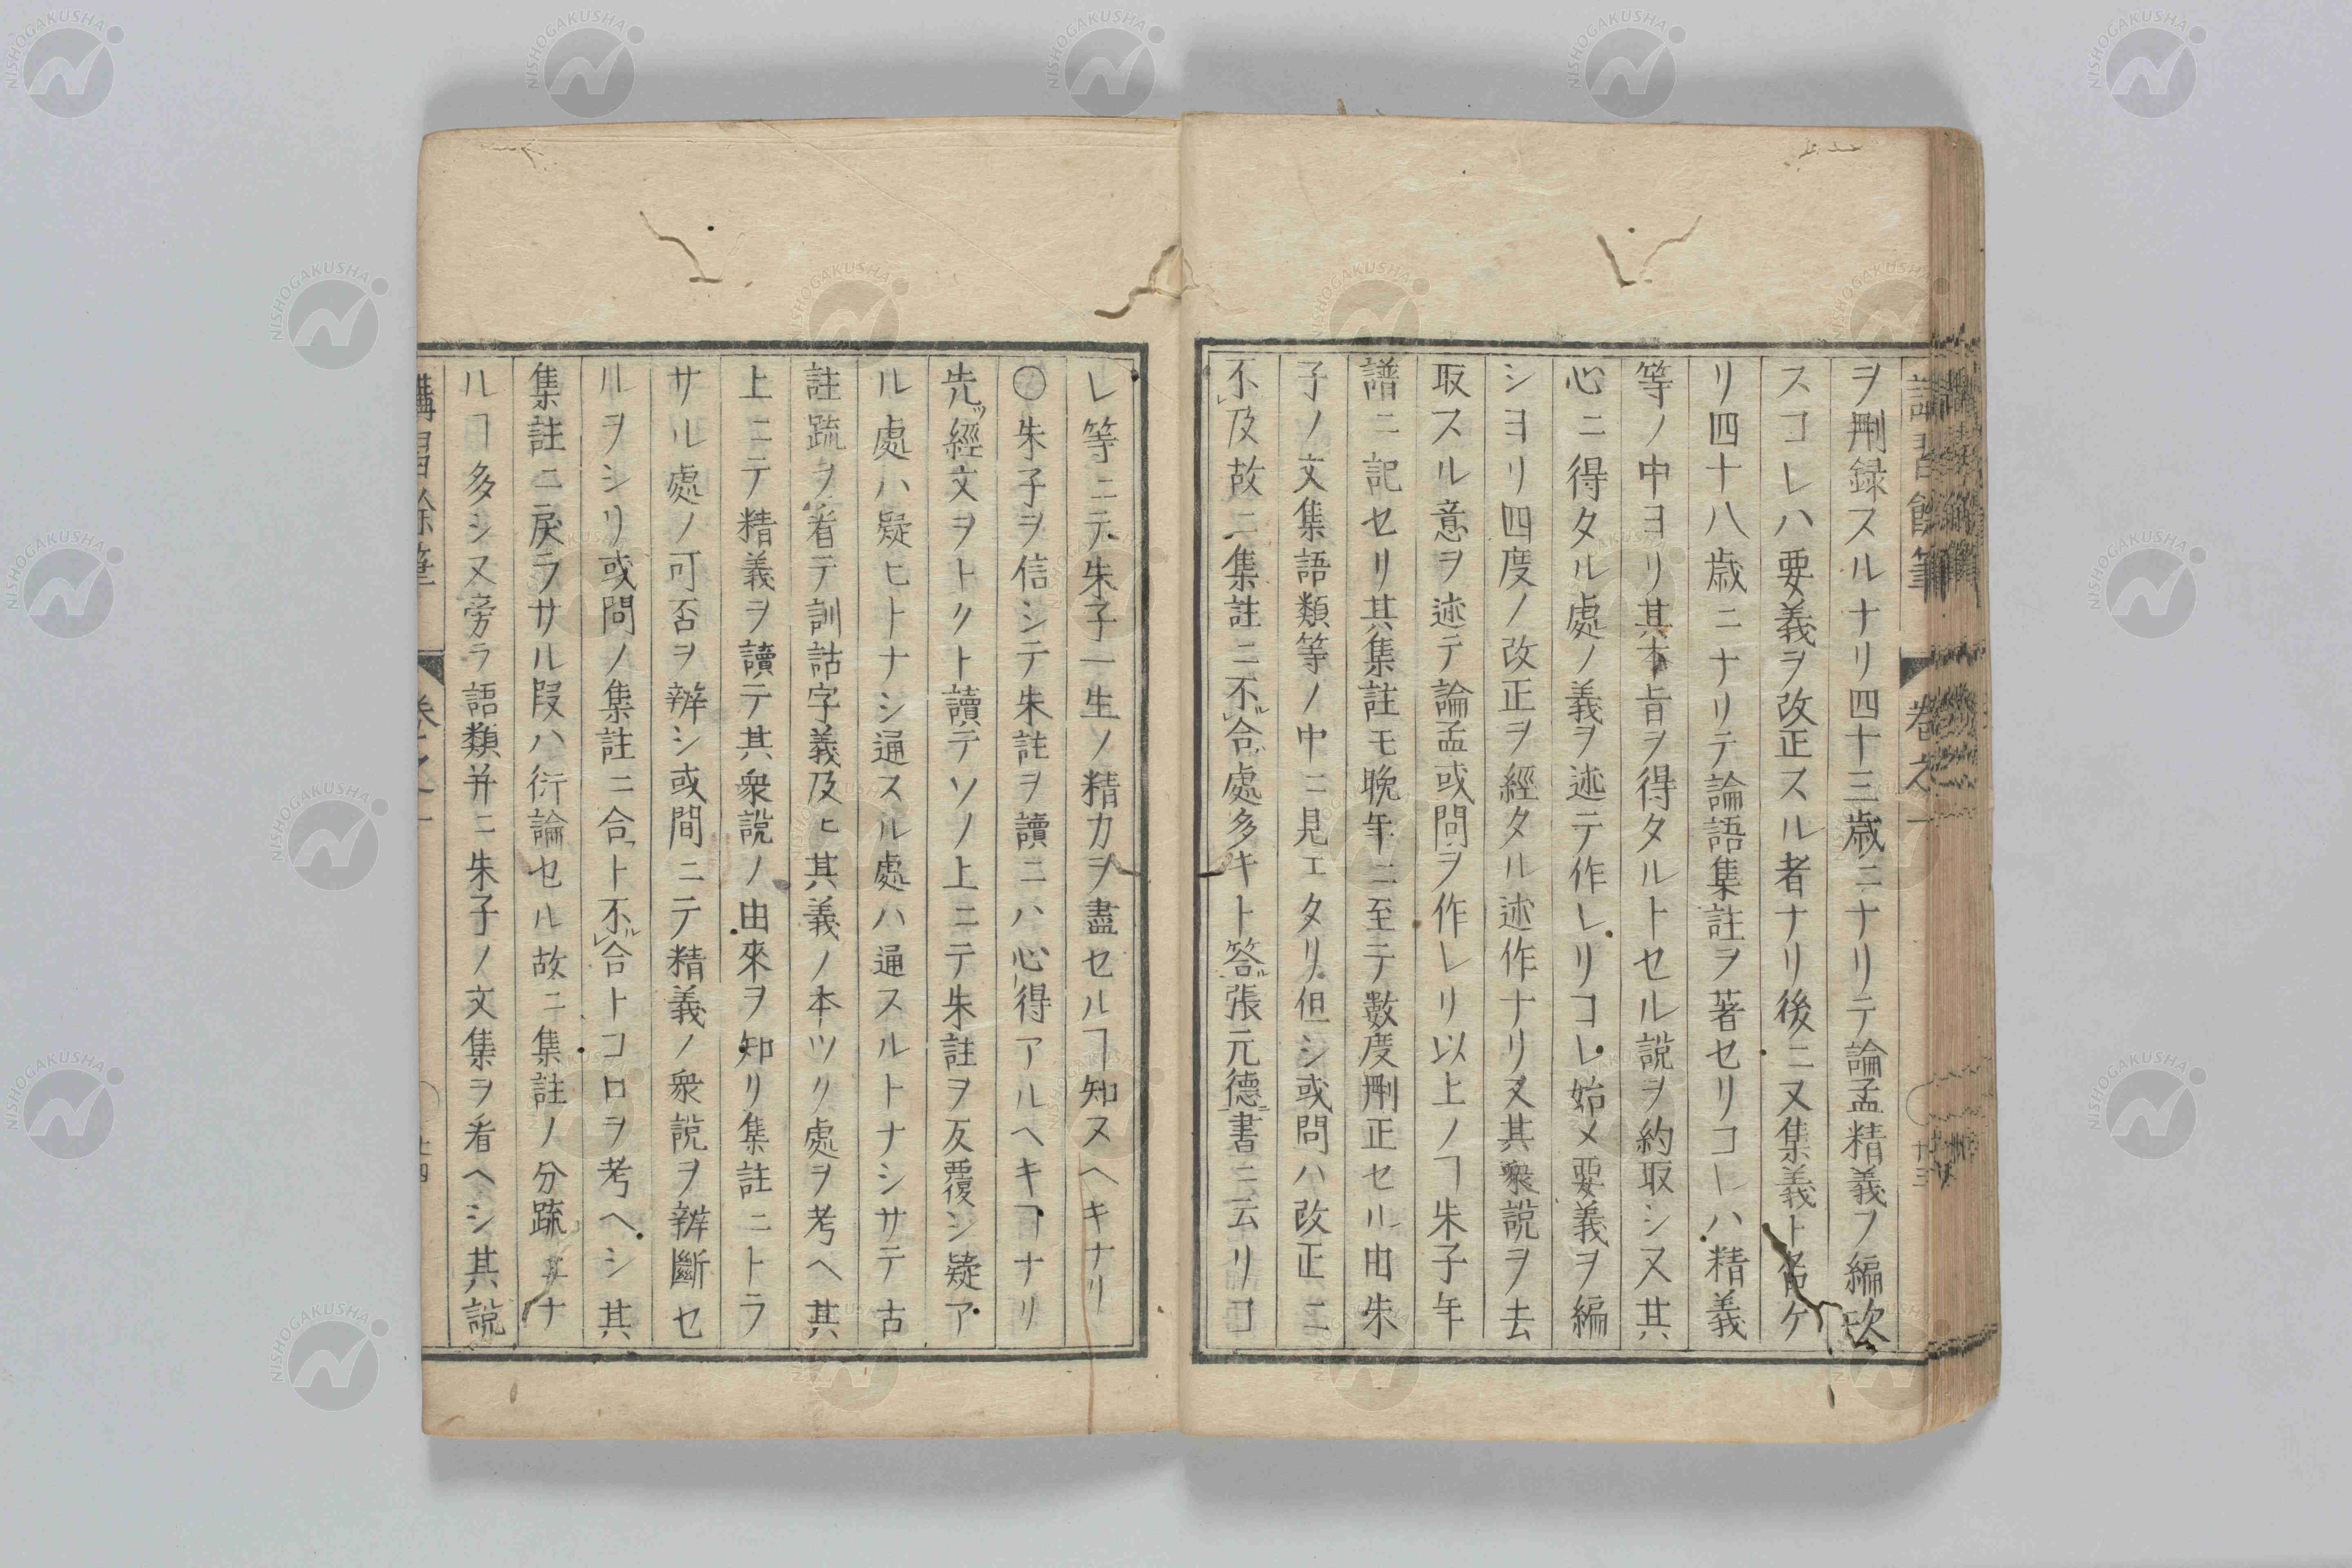 講習餘筆 卷之一 廿三
ヲ刪録スルナリ四十三歳ニナリテ論孟精義ノ編欤
スコレハ要義ヲ改正スル者ナリ後ニ又集義ト名ケ
リ四十八歳ニナリテ論語集註ヲ著セリコレハ精義
等ノ中ヨリ其本旨ヲ得タルトセル説ヲ約取シ又其
心ニ得タル處ノ義ヲ述テ作レリコレ始メ要義ヲ編
シヨリ四度ノ改正ヲ經タル述作ナリ又其衆説ヲ去
取スル意ヲ述テ論孟或問ヲ作レリ以上ノヿ朱子年
譜ニ記セリ其集註モ晩年ニ至テ數度刪正セル由朱
子ノ文集語類等ノ中ニ見エタリ但シ或問ハ改正ニ
不レ及故ニ集註ニ不ル合ハ處多キト答ル張元德ニ書ニ云リコ
レ等ニテ朱子一生ノ精力ヲ盡セルヿ知ヌヘキナリ
〇朱子ヲ信シテ朱註ヲ讀ニハ心得アルヘキヿナリ
先ツ經文ヲトクト讀テソノ上ニテ朱註ヲ反覆シ疑ア
ル處ハ疑ヒトナシ通スル處ハ通スルトナシサテ古
註疏ヲ看テ訓詁字義及ヒ其義ノ本ツク處ヲ考ヘ其
上ニテ精義ヲ讀テ其衆説ノ由來ヲ知リ集註ニトラ
サル處ノ可否ヲ辨シ或問ニテ精義ノ衆説ヲ辨斷セ
ルヲシリ或問ノ集註ニ合ト不ルレ合トコロヲ考ヘシ其
集註ニ戻ラサル段ハ衍論セル故ニ集註ノ分疏ナ
ルヿ多シ又旁ラ語類并ニ朱子ノ文集ヲ看ヘシ其説
講習餘筆 卷之一 廿四
NISHOGAKUSHA